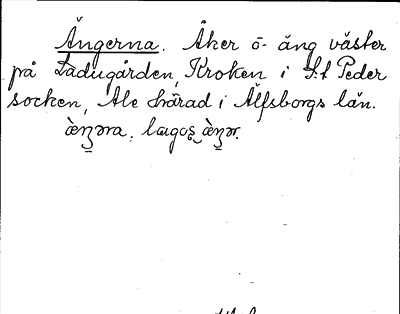 Ängerna. Åker o- äng väster
på Ladugården, Kroken i S:t Peder
socken, Ale härad i Älfsborgs län.